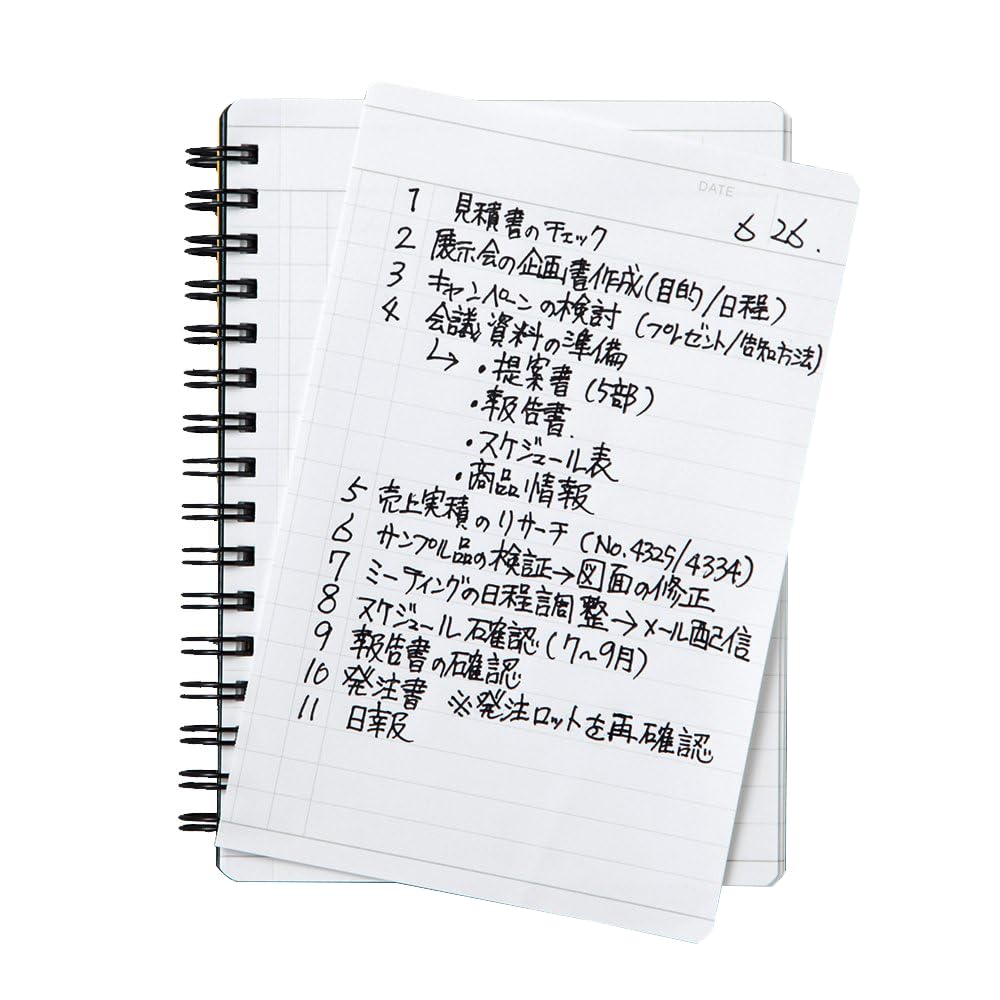 DATE
6 26.
1 見積書のチェック
2 展示会の企画書作成(目的/日程)
3 キャンペーンの検討 (プレゼント/告知方法)
4 会議資料の準備
↳ ・提案書 (5部)
・報告書.
・スケジュール表
・商品情報
5 売上実積のリサーチ (No.4325/4334)
6 サンプル品の検証→図面の修正
7 ミーティングの日程調整→メール配信
8 スケジュール確認 (7〜9月)
9 報告書の確認
10 発注書 ※発注ロットを再確認
11 日報